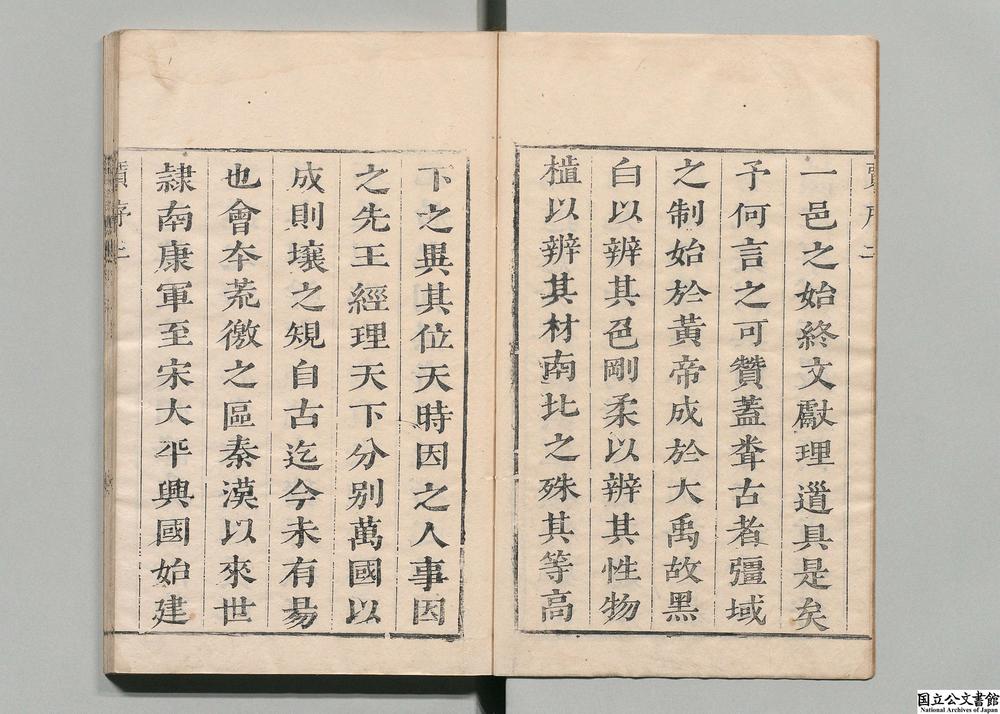 一邑之始終文獻理道具是矣
予何言之可贊蓋聞古者彊域
之制始於黃帝成於大禹故黑
白以辨其色剛柔以辨其性物
植以辨其材南北之殊其等高
下之異其位天時因之人事因
之先王經理天下分别萬國以
成則壤之規自古迄今未有易
也會本荒徼之區秦漢以來世
隷南康軍至宋太平興國始建
国立公文書館
National Archives of Japan